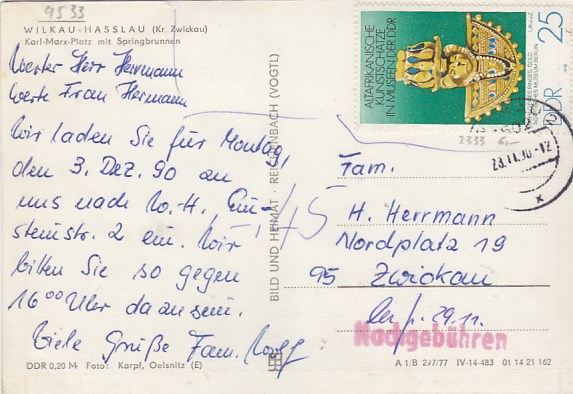 9533
WILKAU-HASSLAU (Kr. Zwickau)
Karl-Marx-Platz mit Springbrunnen
Werter Herr Herrmann
Werte Frau Hermann
Wir laden Sie für Montag,
den 3. Dez. 90 an
uns nach W.-H. Ein-
steinstr. 2 ein. Wir
bitten Sie so gegen
16 00 Uhr da zu sein.
Viele Grüße Fam. Wolf
DDR 0,20 M Foto: Karpf, Oelsnitz (E)
BILD UND HEIMAT · REICHENBACH (VOGTL)
145
ALTAFRIKANISCHE
KUNSTSCHÄTZE
IN MUSEEN DER DDR
25
DDR
2333 6,-
28.11.90-12
Fam.
H. Herrmann
Nordplatz 19
95 Zwickau
29.11.
Nachgebühren
A 1/B 297/77 IV-14-483 01 14 21 162